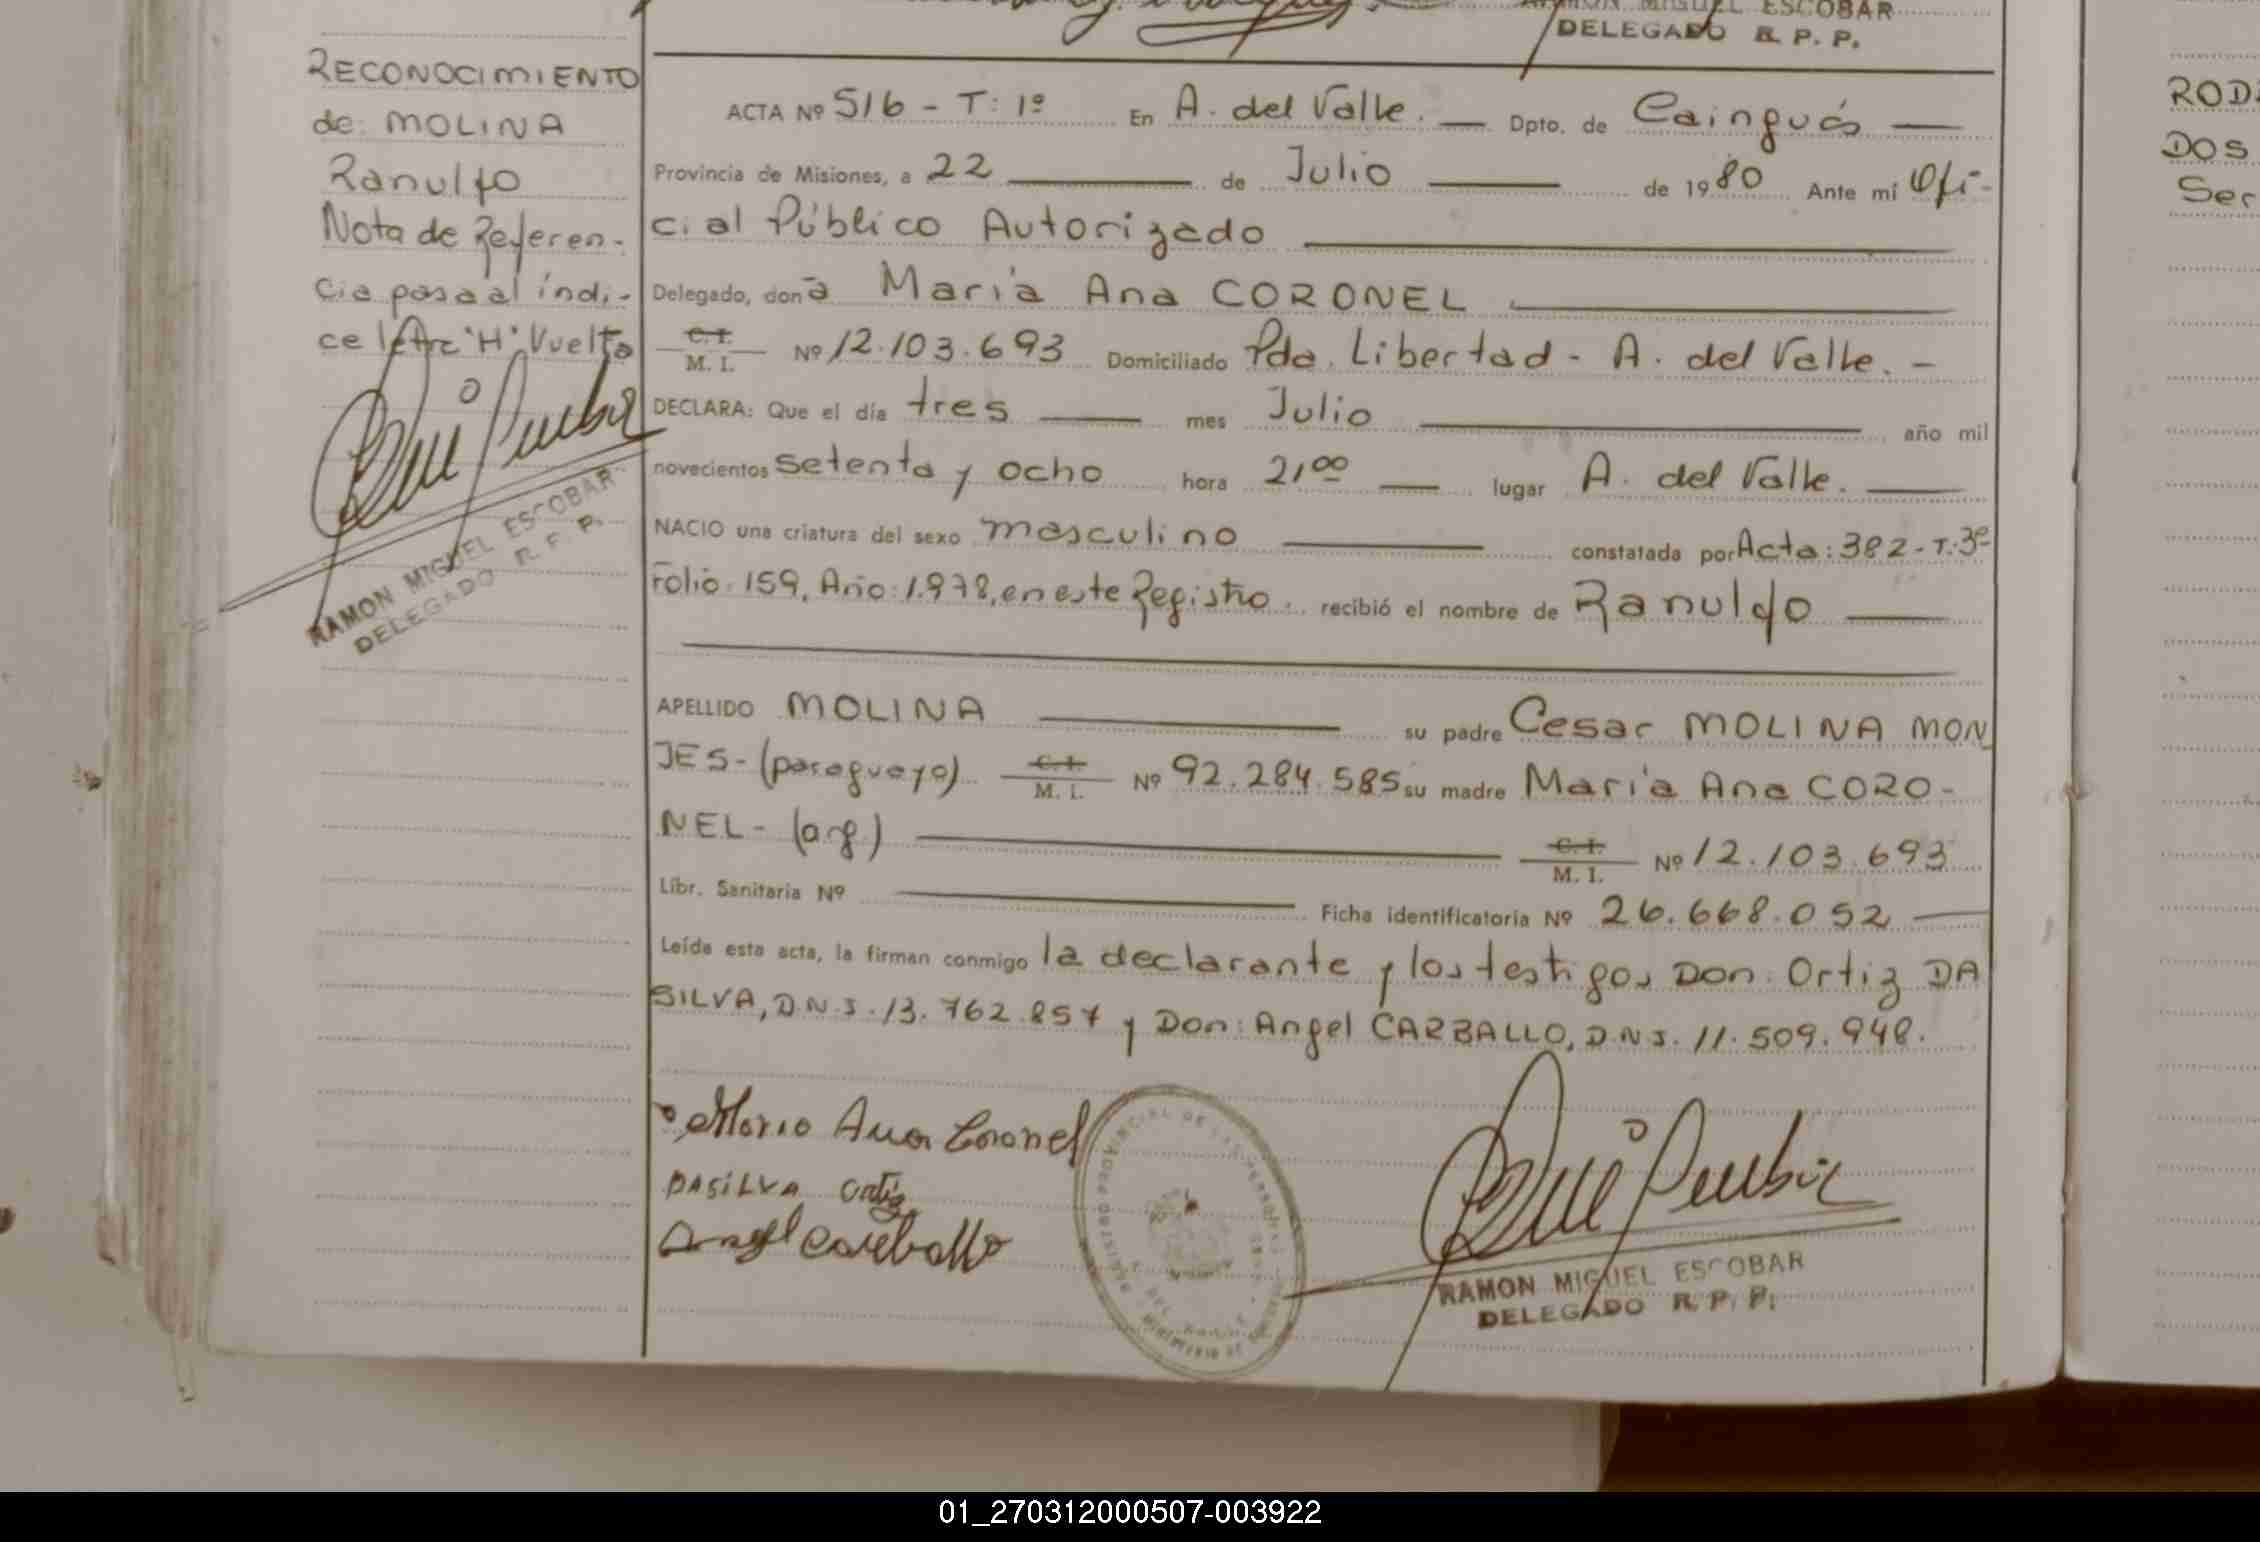 MIGUEL ESCOBAR
DELEGADO R. P. P.
RECONOCIMIENTO
de: MOLINA
Ranulfo
Nota de Referen-
cia pasa al índi-
ce letra "H" Vuelta
RAMON MIGUEL ESCOBAR
DELEGADO R. P. P.
ACTA Nº 516 - T: 1º En A. del Valle. — Dpto. de Cainguás —
Provincia de Misiones, a 22 — de Julio — de 1980 Ante mí Ofi-
cial Público Autorizado —
Delegado, doña María Ana CORONEL —
C. I.
M. I. Nº 12.103.693 Domiciliado Pda. Libertad - A. del Valle. -
DECLARA: Que el día tres — mes Julio — año mil
novecientos setenta y ocho hora 21ºº — lugar A. del Valle. —
NACIO una criatura del sexo masculino — constatada por Acta: 382 - T: 3º
Folio: 159, Año: 1.978, en este Registro. recibió el nombre de Ranulfo —
APELLIDO MOLINA — su padre Cesar MOLINA MON
JES - (paraguayo) C. I.
M. I. Nº 92.284.585 su madre María Ana CORO-
NEL - (arg.) — C. I.
M. I. Nº 12.103.693
Libr. Sanitaria Nº — Ficha identificatoria Nº 26.668.052 —
Leída esta acta, la firman conmigo la declarante y los testigos Don: Ortiz DA
SILVA, D.N.I. 13.762.857 y Don: Angel CARBALLO, D.N.I. 11.509.948.
Maria Ana Coronel
DASILVA Ortiz
Angel Carballo
RAMON MIGUEL ESCOBAR
DELEGADO R. P. P.
ROD
DOS
Ser
01_270312000507-003922